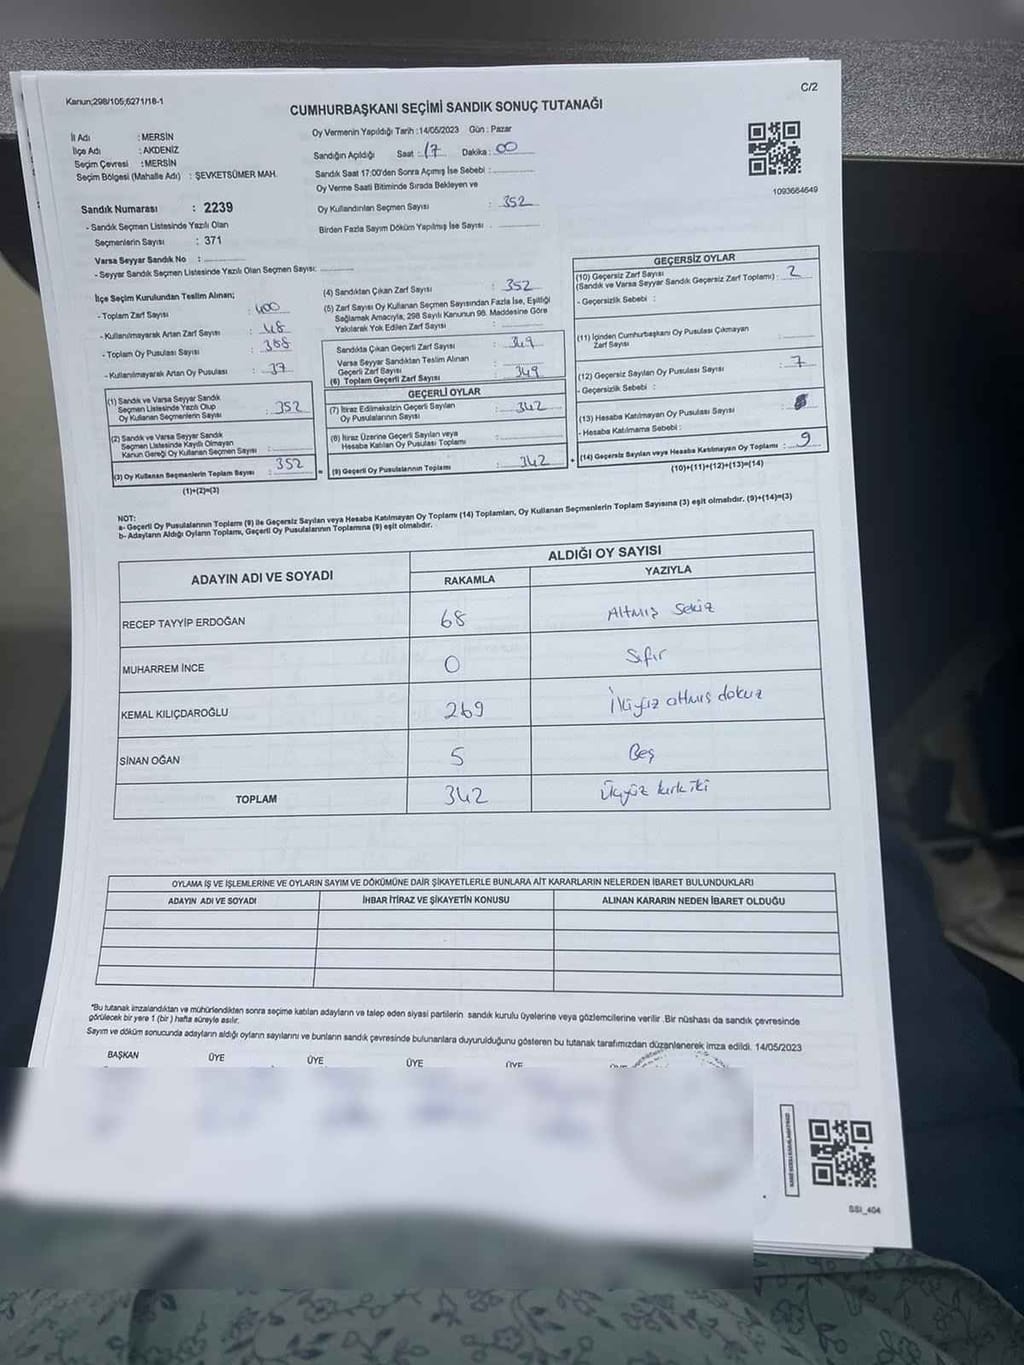 Kanun;298/105;6271/18-1
C/2
CUMHURBAŞKANI SEÇİMİ SANDIK SONUÇ TUTANAĞI
İl Adı : MERSİN
İlçe Adı : AKDENİZ
Seçim Çevresi : MERSİN
Seçim Bölgesi (Mahalle Adı) : ŞEVKETSÜMER MAH.
Sandık Numarası : 2239
- Sandık Seçmen Listesinde Yazılı Olan
Seçmenlerin Sayısı : 371
Varsa Seyyar Sandık No :
- Seyyar Sandık Seçmen Listesinde Yazılı Olan Seçmen Sayısı:
Oy Vermenin Yapıldığı Tarih :14/05/2023 Gün : Pazar
Sandığın Açıldığı Saat : 17 Dakika : 00
Sandık Saat 17:00'den Sonra Açımış İse Sebebi :
Oy Verme Saati Bitiminde Sırada Bekleyen ve
Oy Kullandırılan Seçmen Sayısı : 352
Birden Fazla Sayım Döküm Yapılmış İse Sayısı :
1093664649
İlçe Seçim Kurulundan Teslim Alınan;
- Toplam Zarf Sayısı : 400
- Kullanılmayarak Artan Zarf Sayısı : 48
- Toplam Oy Pusulası Sayısı :
- Kullanılmayarak Artan Oy Pusulası : 37
(1) Sandık ve Varsa Seyyar Sandık
Seçmen Listesinde Yazılı Olup
Oy Kullanan Seçmenlerin Sayısı : 352
(2) Sandık ve Varsa Seyyar Sandık
Seçmen Listesinde Kayıtlı Olmayan
Kanun Gereği Oy Kullanan Seçmen Sayısı :
(3) Oy Kullanan Seçmenlerin Toplam Sayısı : 352
(1)+(2)=(3)
(4) Sandıktan Çıkan Zarf Sayısı : 352
(5) Zarf Sayısı Oy Kullanan Seçmen Sayısından Fazla İse, Eşitliği
Sağlamak Amacıyla, 298 Sayılı Kanunun 98. Maddesine Göre
Yakılarak Yok Edilen Zarf Sayısı :
Sandıkta Çıkan Geçerli Zarf Sayısı : 349
Varsa Seyyar Sandıktan Teslim Alınan
Geçerli Zarf Sayısı :
(6) Toplam Geçerli Zarf Sayısı 349
GEÇERLİ OYLAR
(7) İtiraz Edilmeksizin Geçerli Sayılan
Oy Pusulalarının Sayısı : 342
(8) İtiraz Üzerine Geçerli Sayılan veya
Hesaba Katılan Oy Pusulası Toplamı :
= (9) Geçerli Oy Pusulalarının Toplamı : 342
GEÇERSİZ OYLAR
(10) Geçersiz Zarf Sayısı
(Sandık ve Varsa Seyyar Sandık Geçersiz Zarf Toplamı) : 2
- Geçersizlik Sebebi :
(11) İçinden Cumhurbaşkanı Oy Pusulası Çıkmayan
Zarf Sayısı :
(12) Geçersiz Sayılan Oy Pusulası Sayısı : 7
- Geçersizlik Sebebi :
(13) Hesaba Katılmayan Oy Pusulası Sayısı :
- Hesaba Katılmama Sebebi :
+ (14) Geçersiz Sayılan veya Hesaba Katılmayan Oy Toplamı : 9
(10)+(11)+(12)+(13)=(14)
NOT:
a- Geçerli Oy Pusulalarının Toplamı (9) ile Geçersiz Sayılan veya Hesaba Katılmayan Oy Toplamı (14) Toplamları, Oy Kullanan Seçmenlerin Toplam Sayısına (3) eşit olmalıdır. (9)+(14)=(3)
b- Adayların Aldığı Oyların Toplamı, Geçerli Oy Pusulalarının Toplamına (9) eşit olmalıdır.
ADAYIN ADI VE SOYADI
ALDIĞI OY SAYISI
RAKAMLA YAZIYLA
RECEP TAYYİP ERDOĞAN 68 Altmış Sekiz
MUHARREM İNCE 0 Sıfır
KEMAL KILIÇDAROĞLU 269 İkiyüz altmış dokuz
SİNAN OĞAN 5 Beş
TOPLAM 342 Üçyüz kırk iki
OYLAMA İŞ VE İŞLEMLERİNE VE OYLARIN SAYIM VE DÖKÜMÜNE DAİR ŞİKAYETLERLE BUNLARA AİT KARARLARIN NELERDEN İBARET BULUNDUKLARI
ADAYIN ADI VE SOYADI İHBAR İTİRAZ VE ŞİKAYETİN KONUSU ALINAN KARARIN NEDEN İBARET OLDUĞU
*Bu tutanak imzalandıktan ve mühürlendikten sonra seçime katılan adayların ve talep eden siyasi partilerin sandık kurulu üyelerine veya gözlemcilerine verilir. Bir nüshası da sandık çevresinde
görülecek bir yere 1 (bir) hafta süreyle asılır.
Sayım ve döküm sonucunda adayların aldığı oyların sayılarını ve bunların sandık çevresinde bulunanlara duyurulduğunu gösteren bu tutanak tarafımızdan düzenlenerek imza edildi. 14/05/2023
BAŞKAN ÜYE ÜYE ÜYE ÜYE
SSI_404